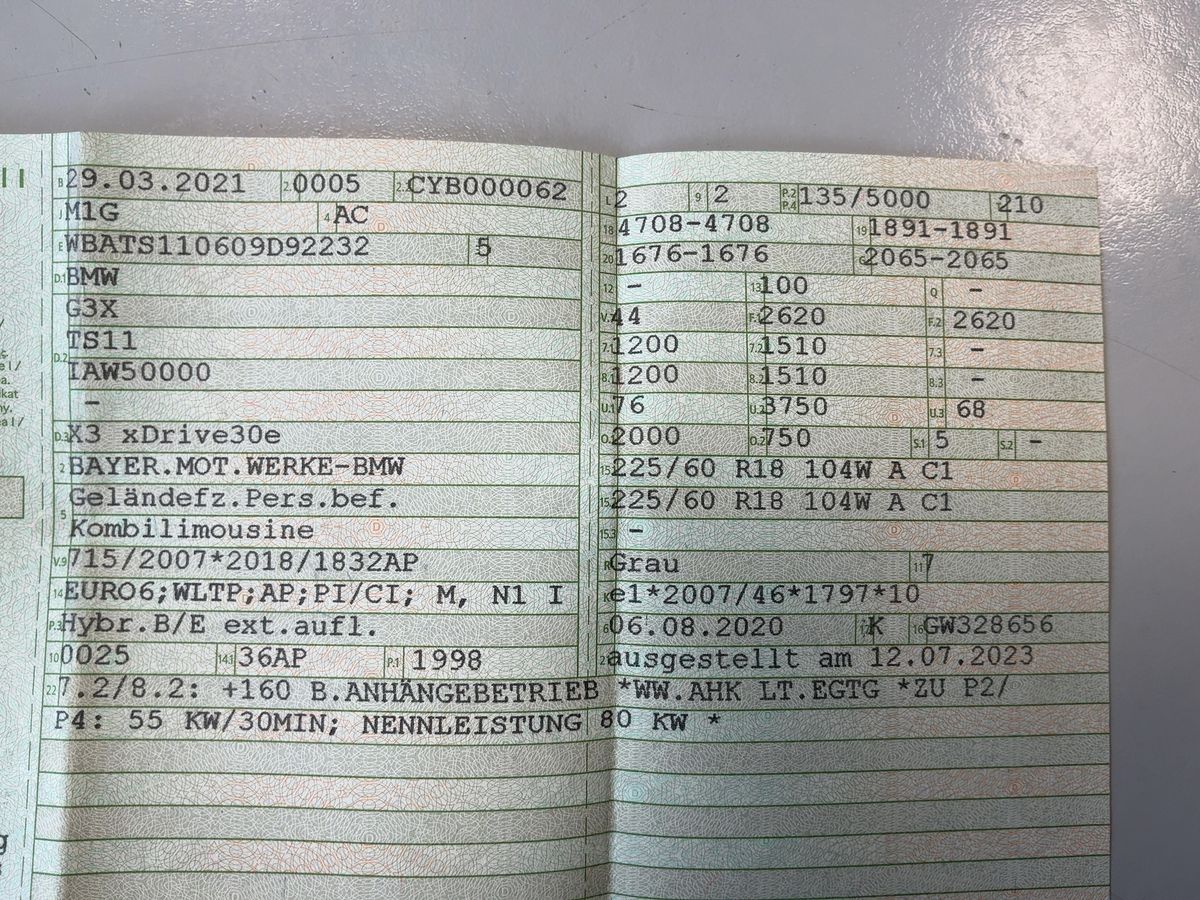 B 29.03.2021 2.1 0005 2.2 CYB000062
J M1G 4 AC
E WBATS110609D92232 5
D.1 BMW
G3X
D.2 TS11
IAW50000
–
D.3 X3 xDrive30e
2 BAYER.MOT.WERKE-BMW
5 Geländefz.Pers.bef.
Kombilimousine
V.9 715/2007*2018/1832AP
14 EURO6;WLTP;AP;PI/CI; M, N1 I
P.3 Hybr.B/E ext.aufl.
10 0025 14.1 36AP P.1 1998
22 7.2/8.2: +160 B.ANHÄNGEBETRIEB *WW.AHK LT.EGTG *ZU P2/
P4: 55 KW/30MIN; NENNLEISTUNG 80 KW *
L 2 9 2 P.2 P.4 135/5000 210
18 4708-4708 19 1891-1891
20 1676-1676 G 2065-2065
12 – 13 100 Q –
V.7 44 F.1 2620 F.2 2620
7.1 1200 7.2 1510 7.3 –
8.1 1200 8.2 1510 8.3 –
U.1 76 U.2 3750 U.3 68
O.1 2000 O.2 750 S.1 5 S.2 –
15.1 225/60 R18 104W A C1
15.2 225/60 R18 104W A C1
15.3 –
R Grau 11 7
K e1*2007/46*1797*10
6 06.08.2020 17 K 16 GW328656
21 ausgestellt am 12.07.2023